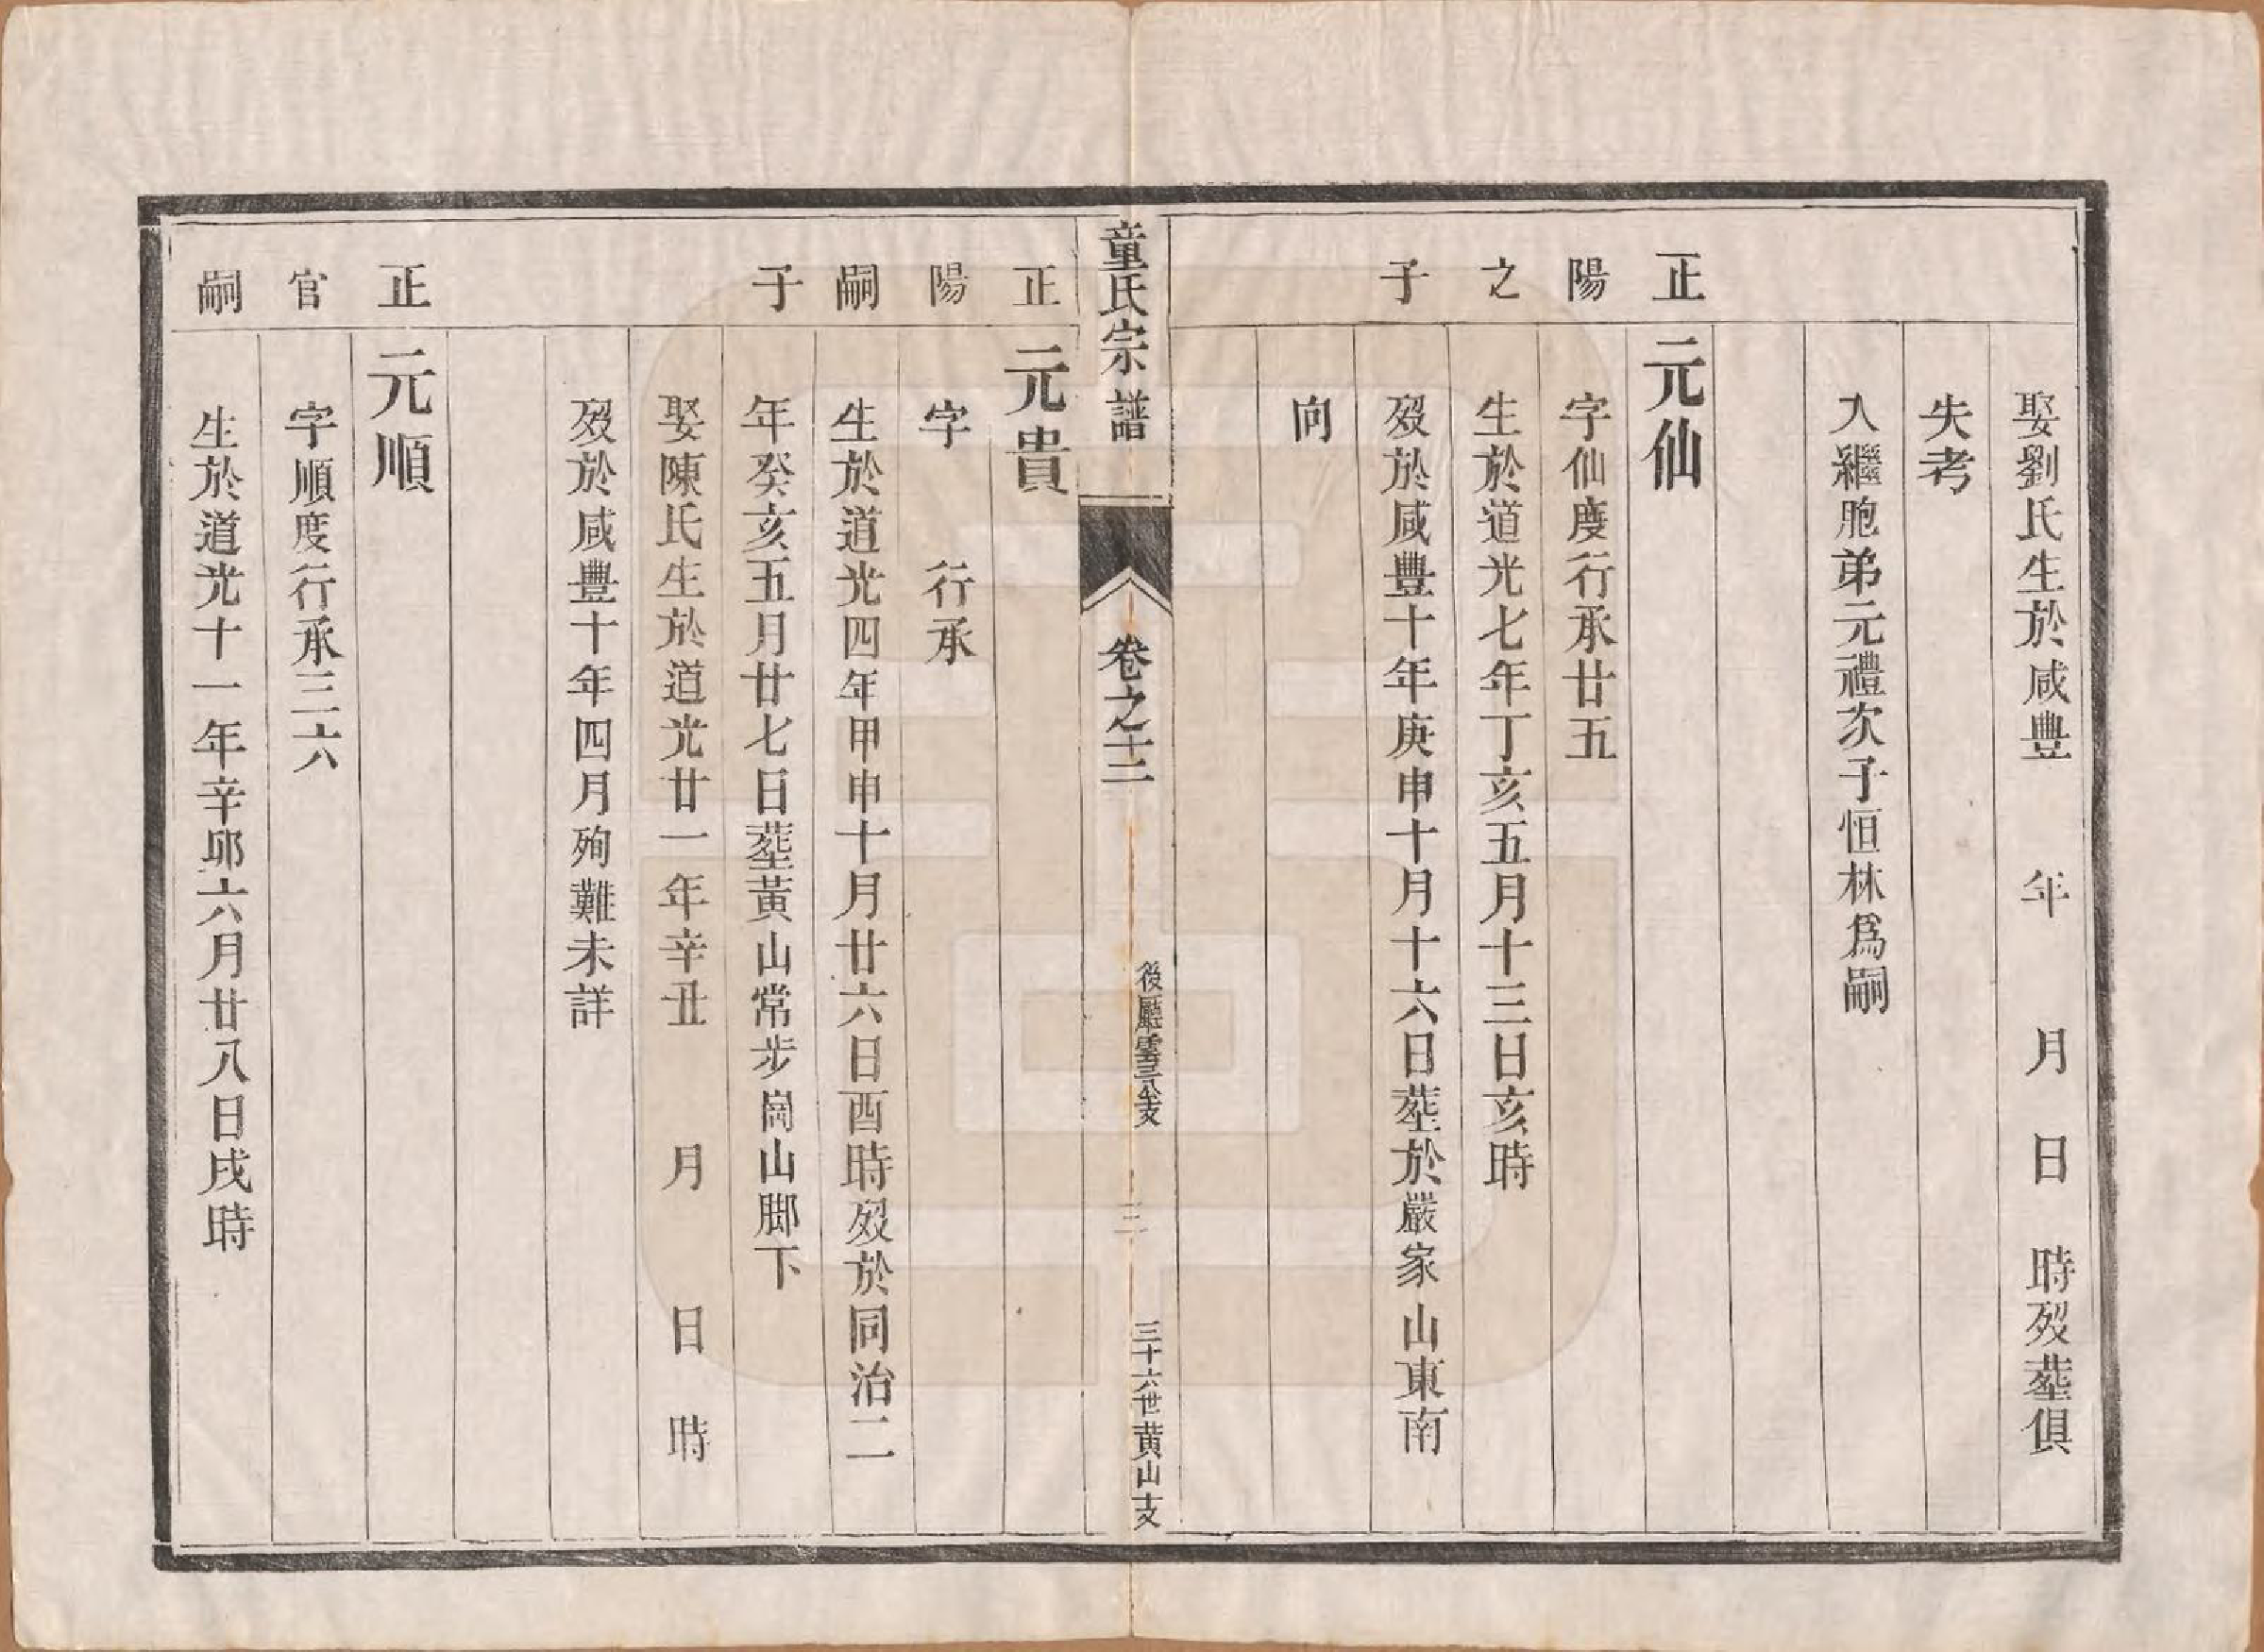 娶劉氏生於咸豐 年 月 日 時歿塟俱
失考
入繼胞弟元禮次子恒林爲嗣
正
元仙
陽
字仙度行承廿五
之
生於道光七年丁亥五月十三日亥時
子
歿於咸豐十年庚申十月十六日塟於嚴家山東南
向
童氏宗譜
卷之十二
後廳雲三公支
三
三十六世黃山支
正
元貴
陽
字 行承
嗣
生於道光四年甲申十月廿六日酉時歿於同治二
子
年癸亥五月廿七日塟黃山常步崗山脚下
娶陳氏生於道光廿一年辛丑 月 日 時
歿於咸豐十年四月殉難未詳
正
元順
官
字順度行承三六
嗣
生於道光十一年辛邜六月廿八日戌時